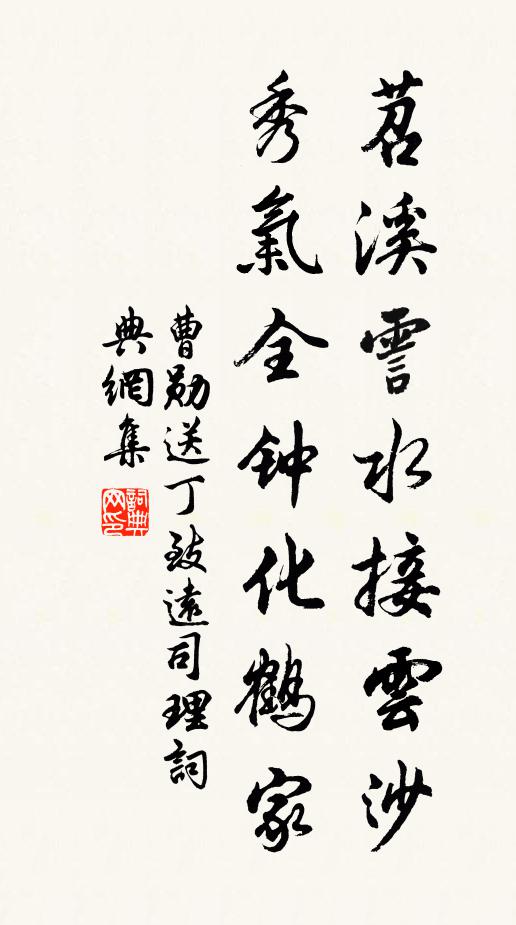 苕溪霅水接雲沙
秀氣全钟化鶴家
曹勛送丁致遠司理詞
典網集
詞典
网印